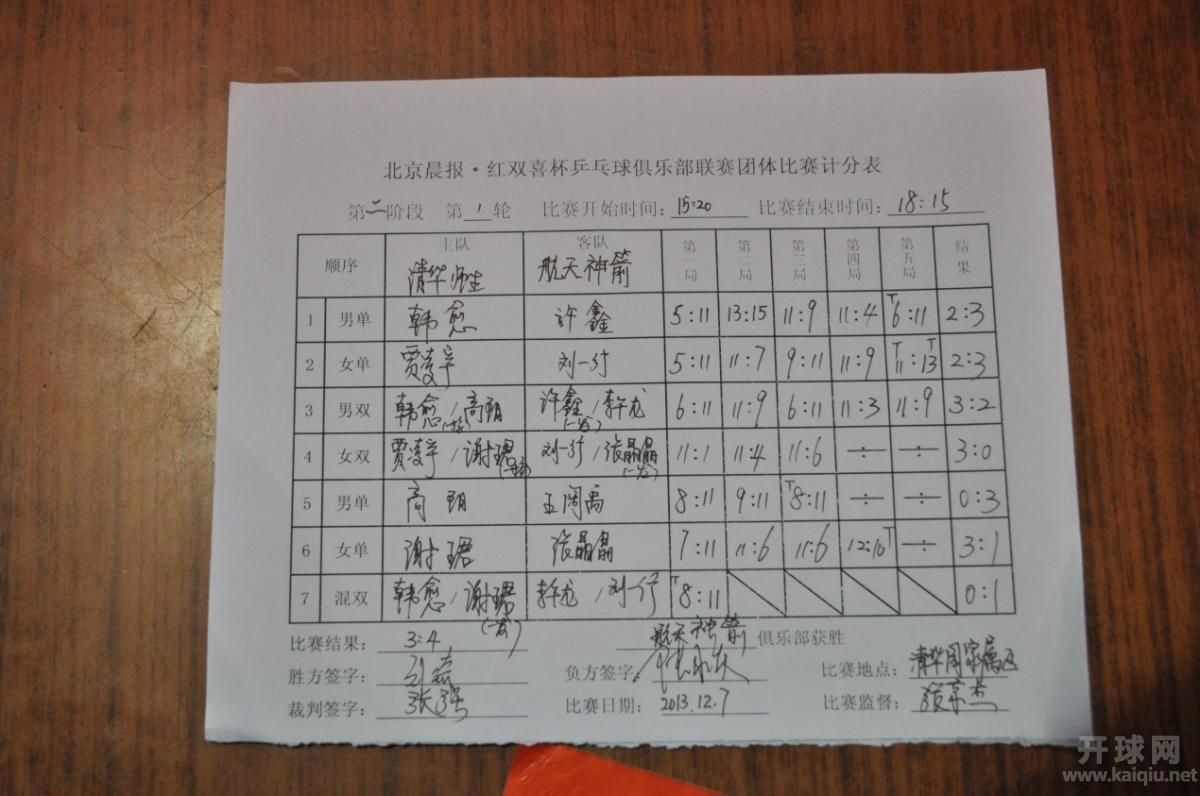 北京晨报·红双喜杯乒乓球俱乐部联赛团体比赛计分表
第二阶段 第1轮 比赛开始时间：15:20 比赛结束时间：18:15
顺序 主队 清华师生 客队 航天神箭 第一局 第二局 第三局 第四局 第五局 结果
1 男单 韩愈 许鑫 5:11 13:15 11:9 11:4 T6:11 2:3
2 女单 贾凌宇 刘一行 5:11 11:7 9:11 11:9 T11:13T 2:3
3 男双 韩愈/高朗 许鑫/李龙 (一发) 6:11 11:9 6:11 11:3 11:9 3:2
4 女双 贾凌宇/谢珺 刘一行/张晶晶 (一发) 11:1 11:4 11:6 ÷ ÷ 3:0
5 男单 高朗 王闰禹 8:11 9:11 T8:11 ÷ ÷ 0:3
6 女单 谢珺 张晶晶 7:11 11:6 11:6 12:10T ÷ 3:1
7 混双 韩愈/谢珺 (一发) 李龙/刘一行 T8:11 0:1
比赛结果： 3:4 航天神箭 俱乐部获胜
胜方签字： 负方签字： 比赛地点： 清华园家属区
裁判签字： 张强 比赛日期： 2013.12.7 比赛监督：
开球网
www.kaiqiu.net